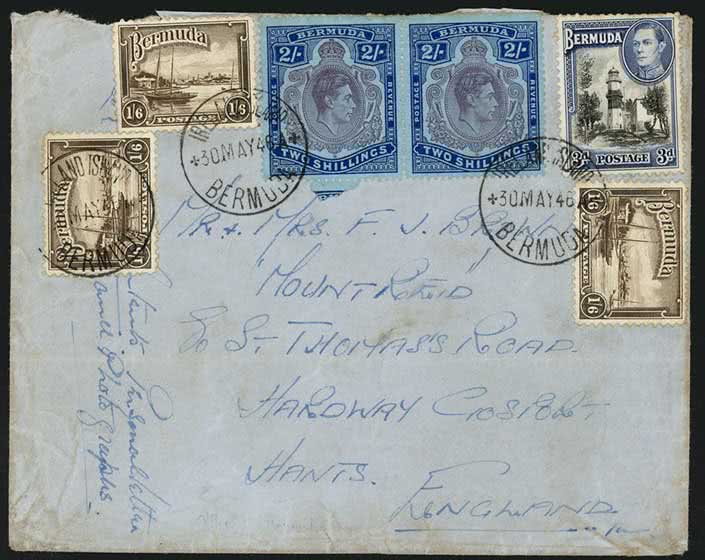 Bermuda
1/6 POSTAGE 1/6
BERMUDA
2/- 2/-
POSTAGE REVENUE
TWO SHILLINGS
BERMUDA
2/- 2/-
POSTAGE REVENUE
TWO SHILLINGS
BERMUDA
3d POSTAGE 3d
Bermuda
1/6 POSTAGE 1/6
Bermuda
1/6
IRELAND ISLAND
+30 MAY 46
BERMUDA
IRELAND ISLAND
MAY
BERMUDA
IRELAND ISLAND
+30 MAY 46
BERMUDA
MR & MRS. F. J. BROWN
"MOUNTREID"
60 ST THOMAS'S ROAD.
HARDWAY GOSPORT
HANTS.
ENGLAND
Personal letter
and Photographs.